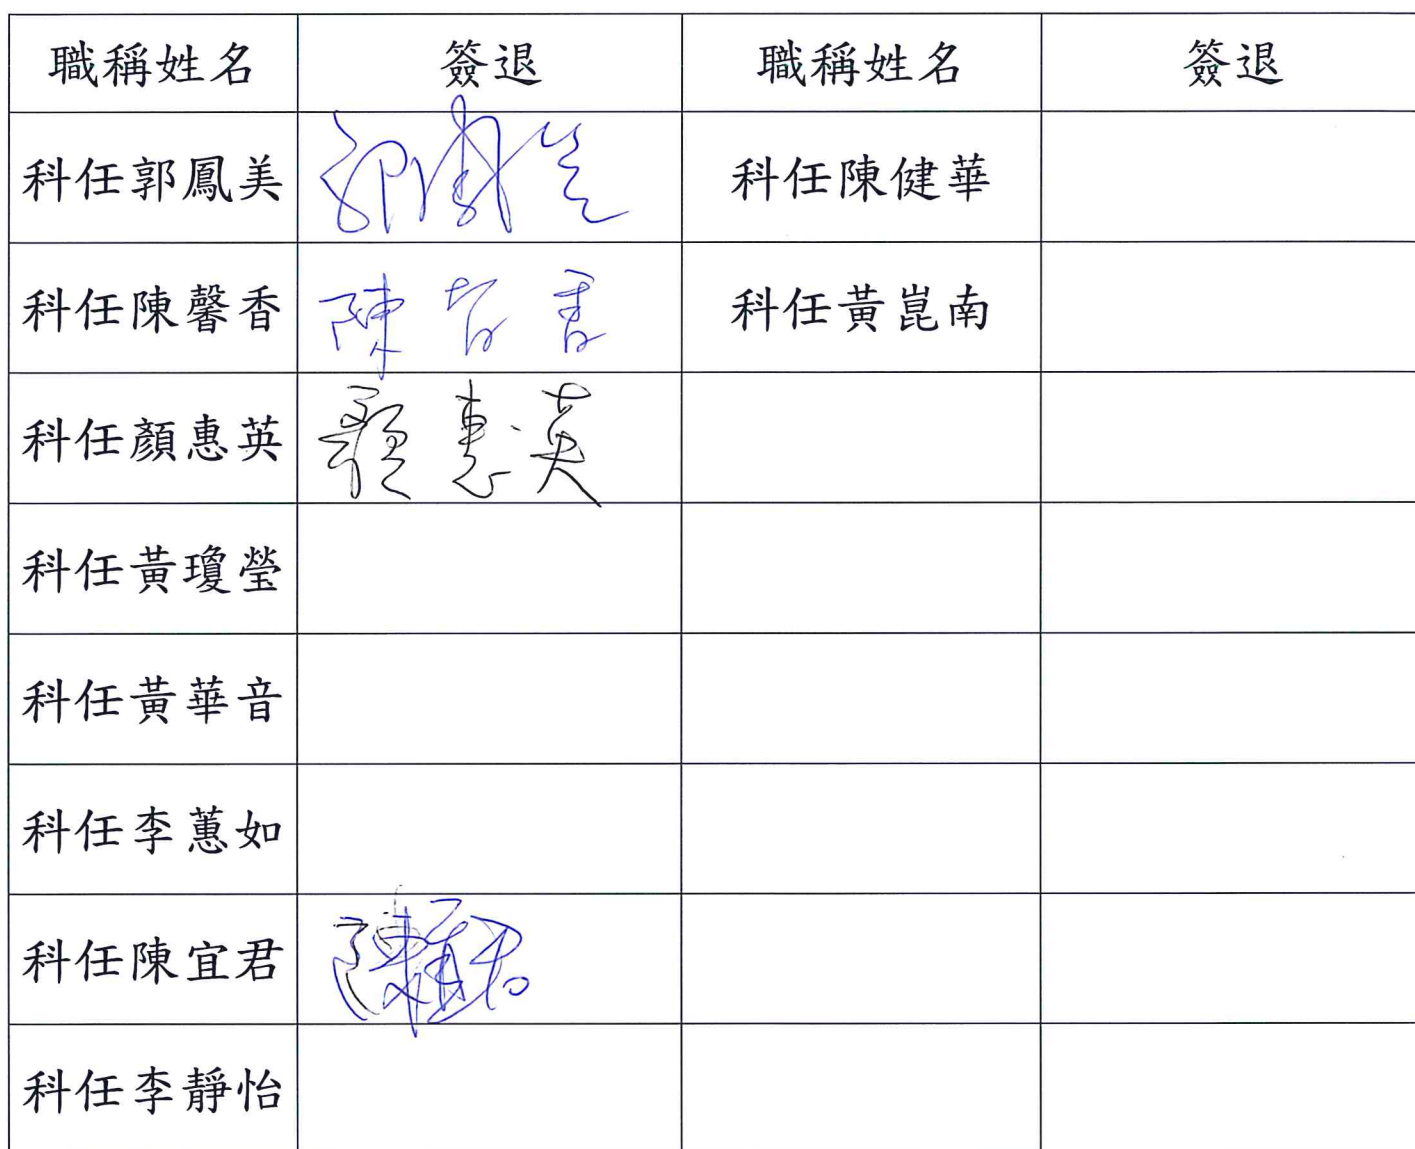 職稱姓名 簽退 職稱姓名 簽退
科任郭鳳美 郭鳳美 科任陳健華
科任陳馨香 陳馨香 科任黃崑南
科任顏惠英 顏惠英
科任黃瓊瑩
科任黃華音
科任李蕙如
科任陳宜君 陳宜君
科任李靜怡